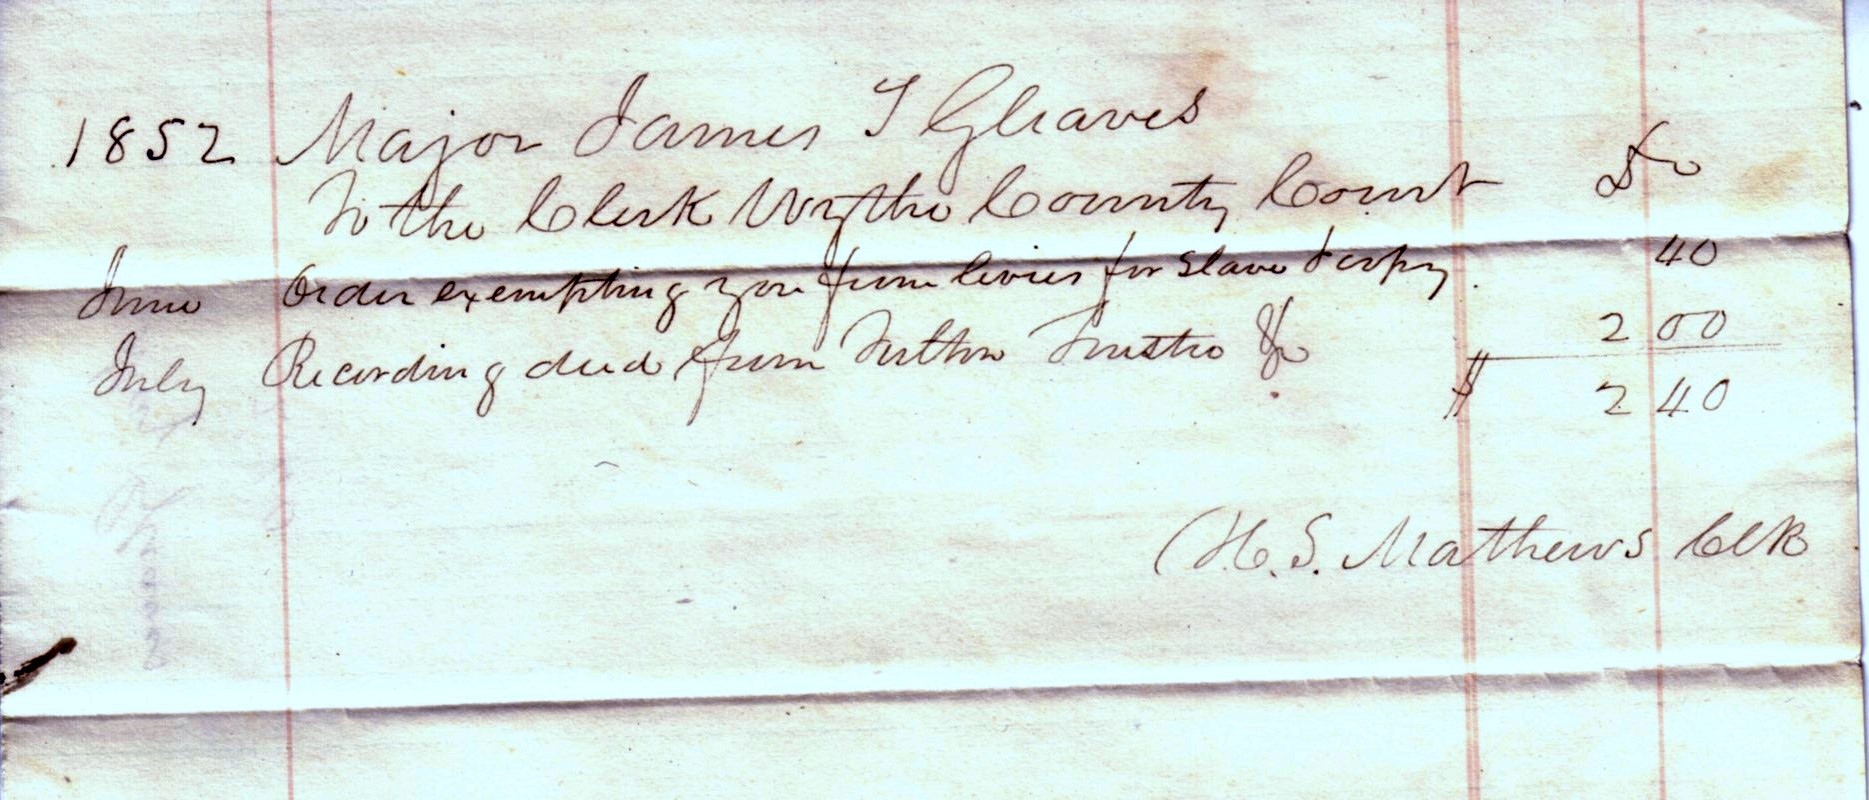 1852 Major James T Gleaves
To the Clerk Wythe County Court Dr
June Order exempting you from levies for slave & copy. 40
July Recording deed from Fulton Trustee &c 2 00
$ 2 40
H. S. Mathews Clk